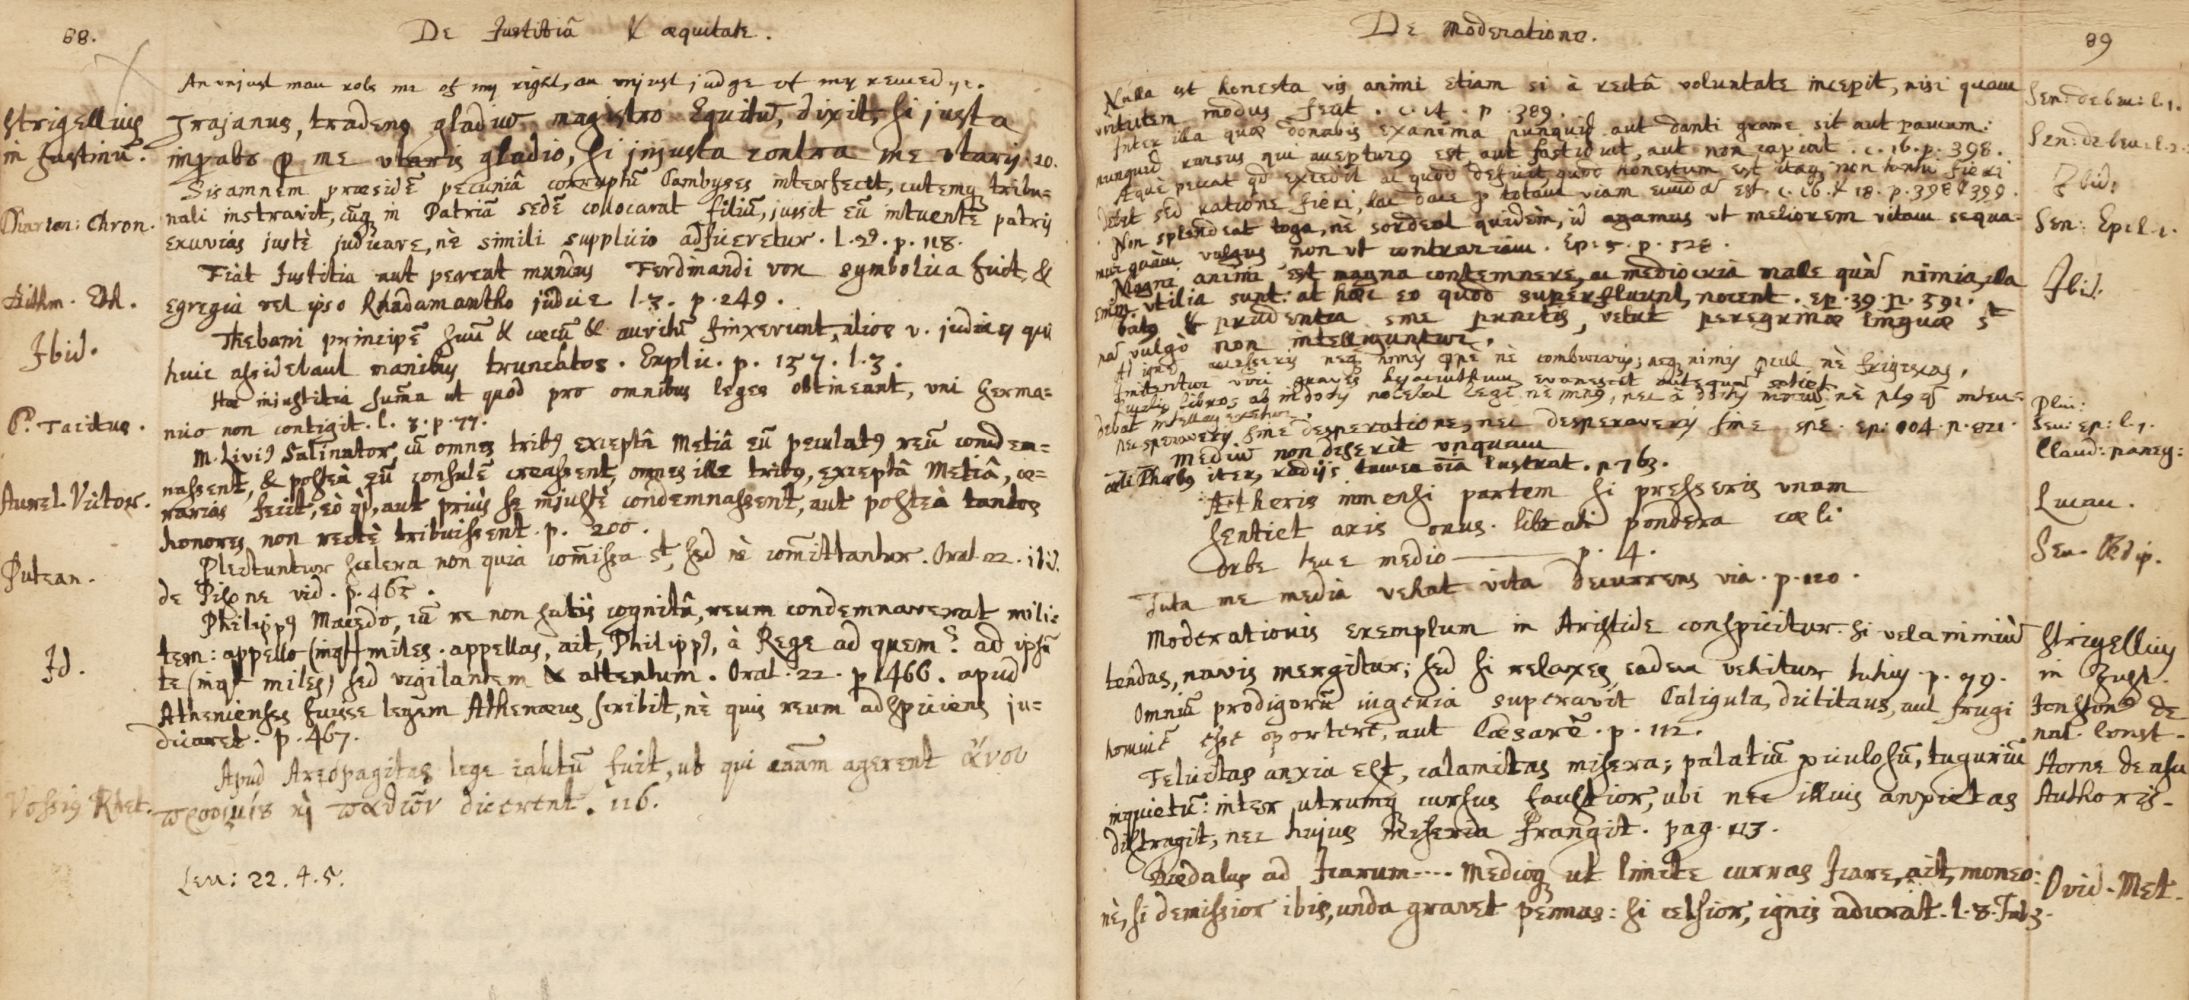 88.
De Justitiâ & æquitate.
An unjust man robs me of my right, an unjust judge of my remedye.
Strigellius in Justinū.
Trajanus, tradens gladiū magistro Equitū, dixit, si justa
imperabo p me utaris gladio, si injusta contra me utaris. 20.
Sisamnem præsidē pecuniâ corruptū Cambyses interfecit, cutemq tribu=
Chron.
nali instravit, cūq in Patriâ sedē collocarat filiū, jussit eū intuentē patris
exuvias justè judicare, nè simili supplicio adficeretur. l. 29. p. 118.
Fiat Justitia aut pereat mundus Ferdinandi vox symbolica fuit, &
Eth.
egregia vel ipso Rhadamantho judice l. 3. p. 249.
Ibid.
Thebani principē suū & cæcū & auritū finxerunt, alios v. judices qui
huic assidebant manibus truncatos. Explic. p. 157. l. 3.
Hæc injustitia suma ut quod pro omnibus leges obtineant, uni Germa=
C. Tacitus.
nico non contigit. l. 3. p. 77.
M. Livi9 Salinator, cū omnes trib9 exceptâ Metiâ eū peculat9 reū condem=
nassent, & posteà eū consulē creassent, omnes ille trib9, exceptâ Metiâ, æ=
Aurel. Victor.
rarias fecit, eò qd, aut priùs se injustè condemnassent, aut posteà tantos
honores non rectè tribuissent. p. 200.
Putean.
Plectuntur scelera non quia comissa st, sed nè comittantur. Orat. 22. ibid.
de Pisone vid. p. 465.
Philipp9 Macedo, cū re non satis cognitâ, reum condemnaverat mili=
Id.
tem: appello (inqt miles. appellas, ait, Philipp9, à Rege ad quem? ad ipsū
te (inqt miles) sed vigilantem & attentum. Orat. 22. p. 466. apud
Athenienses fuisse legem Athenæus scribit, nè quis reum adspiciens ju=
dicaret. p. 467.
Apud Areopagitas lege cautū fuit, ut qui causam agerent ἄνευ
Vossi9 Rhet.
προοιμίου κỳ παθῶν dicerent. 116.
Lev: 22. 4. 5.
89
De Moderatione.
Nulla est honesta vis animi etiam si à rectâ voluntate incepit, nisi quam
Sen: de ben: l. 1.
virtutem modus fecit. c. it. p. 389.
Inter illa quæ donabis examina nunquid aut danti grave sit aut parum:
Sen: de ben: l. 2.
nunquid rursus qui accepturus est, aut fastidiat, aut non capiat. c. 16. p. 398.
Ibid:
Æquè peccat qd excedit ac quod deficit, quod honestum est itaq non
debet sed ratione fieri, hac duce p totam viam eundū est. c. 16. & 18. p. 398 & 399.
Sen: Ep: l. 1.
Non splendeat toga, nè sordeat quidem, id agamus ut meliorem vitam sequa=
mur quàm vulgus, non ut contrariam. Ep: 5. p. 528.
Ibid.
Magni animi est magna contemnere, ac mediocria malle quàm nimia, illa
enim utilia sunt: at hæc eo quod superfluunt, nocent. ep. 39. p. 591.
& prudentia sine punctis, velut peregrinæ linguæ st
vulgò non intelliguntur.
nè comburaris; neq nimis pcul nè frigescas.
Imitentur viri graves evanescit
Plin:
Sen: ep: l. 1.
nec speraveris sine desperatione, nec desperaveris sine spe. ep: 104. p. 821.
Claud: paneg:
Mediū non deserit unquam
cæli Phœb9 iter, radijs tamen oīa lustrat. p. 763.
Lucan.
Ætheris immensi partem si presseris unam
Sentiet axis onus. librati pondera cæli
orbe tene medio — p. 14.
Sen. Œdip.
Tuta me media vehat vita decurrens via. p. 120.
Strigellius in Just.
Moderationis exemplum in Aristide conspicitur. si vela nimiū
tendas, navis mergitur; sed si relaxes, eadem vehitur tutius. p. 99.
Jonston9 de nat. Const.
Omniū prodigorū ingenia superavit Caligula, dictitans, aut frugi
hominē esse oportere, aut Cæsarē. p. 112.
Felicitas anxia est, calamitas misera; palatiū piculosū, tuguriū
inquietū: inter utrumq cursus faustior, ubi nec illius anxietas
Authoris.
distragit, nec hujus miseria frangit. pag. 113.
Dædalus ad Icarum.... Medioq ut limite curras Icare, ait, moneo:
Ovid. Met.
nè, si demissior ibis, unda gravet pennas: si celsior, ignis adurat. l. 8. Fab 3.